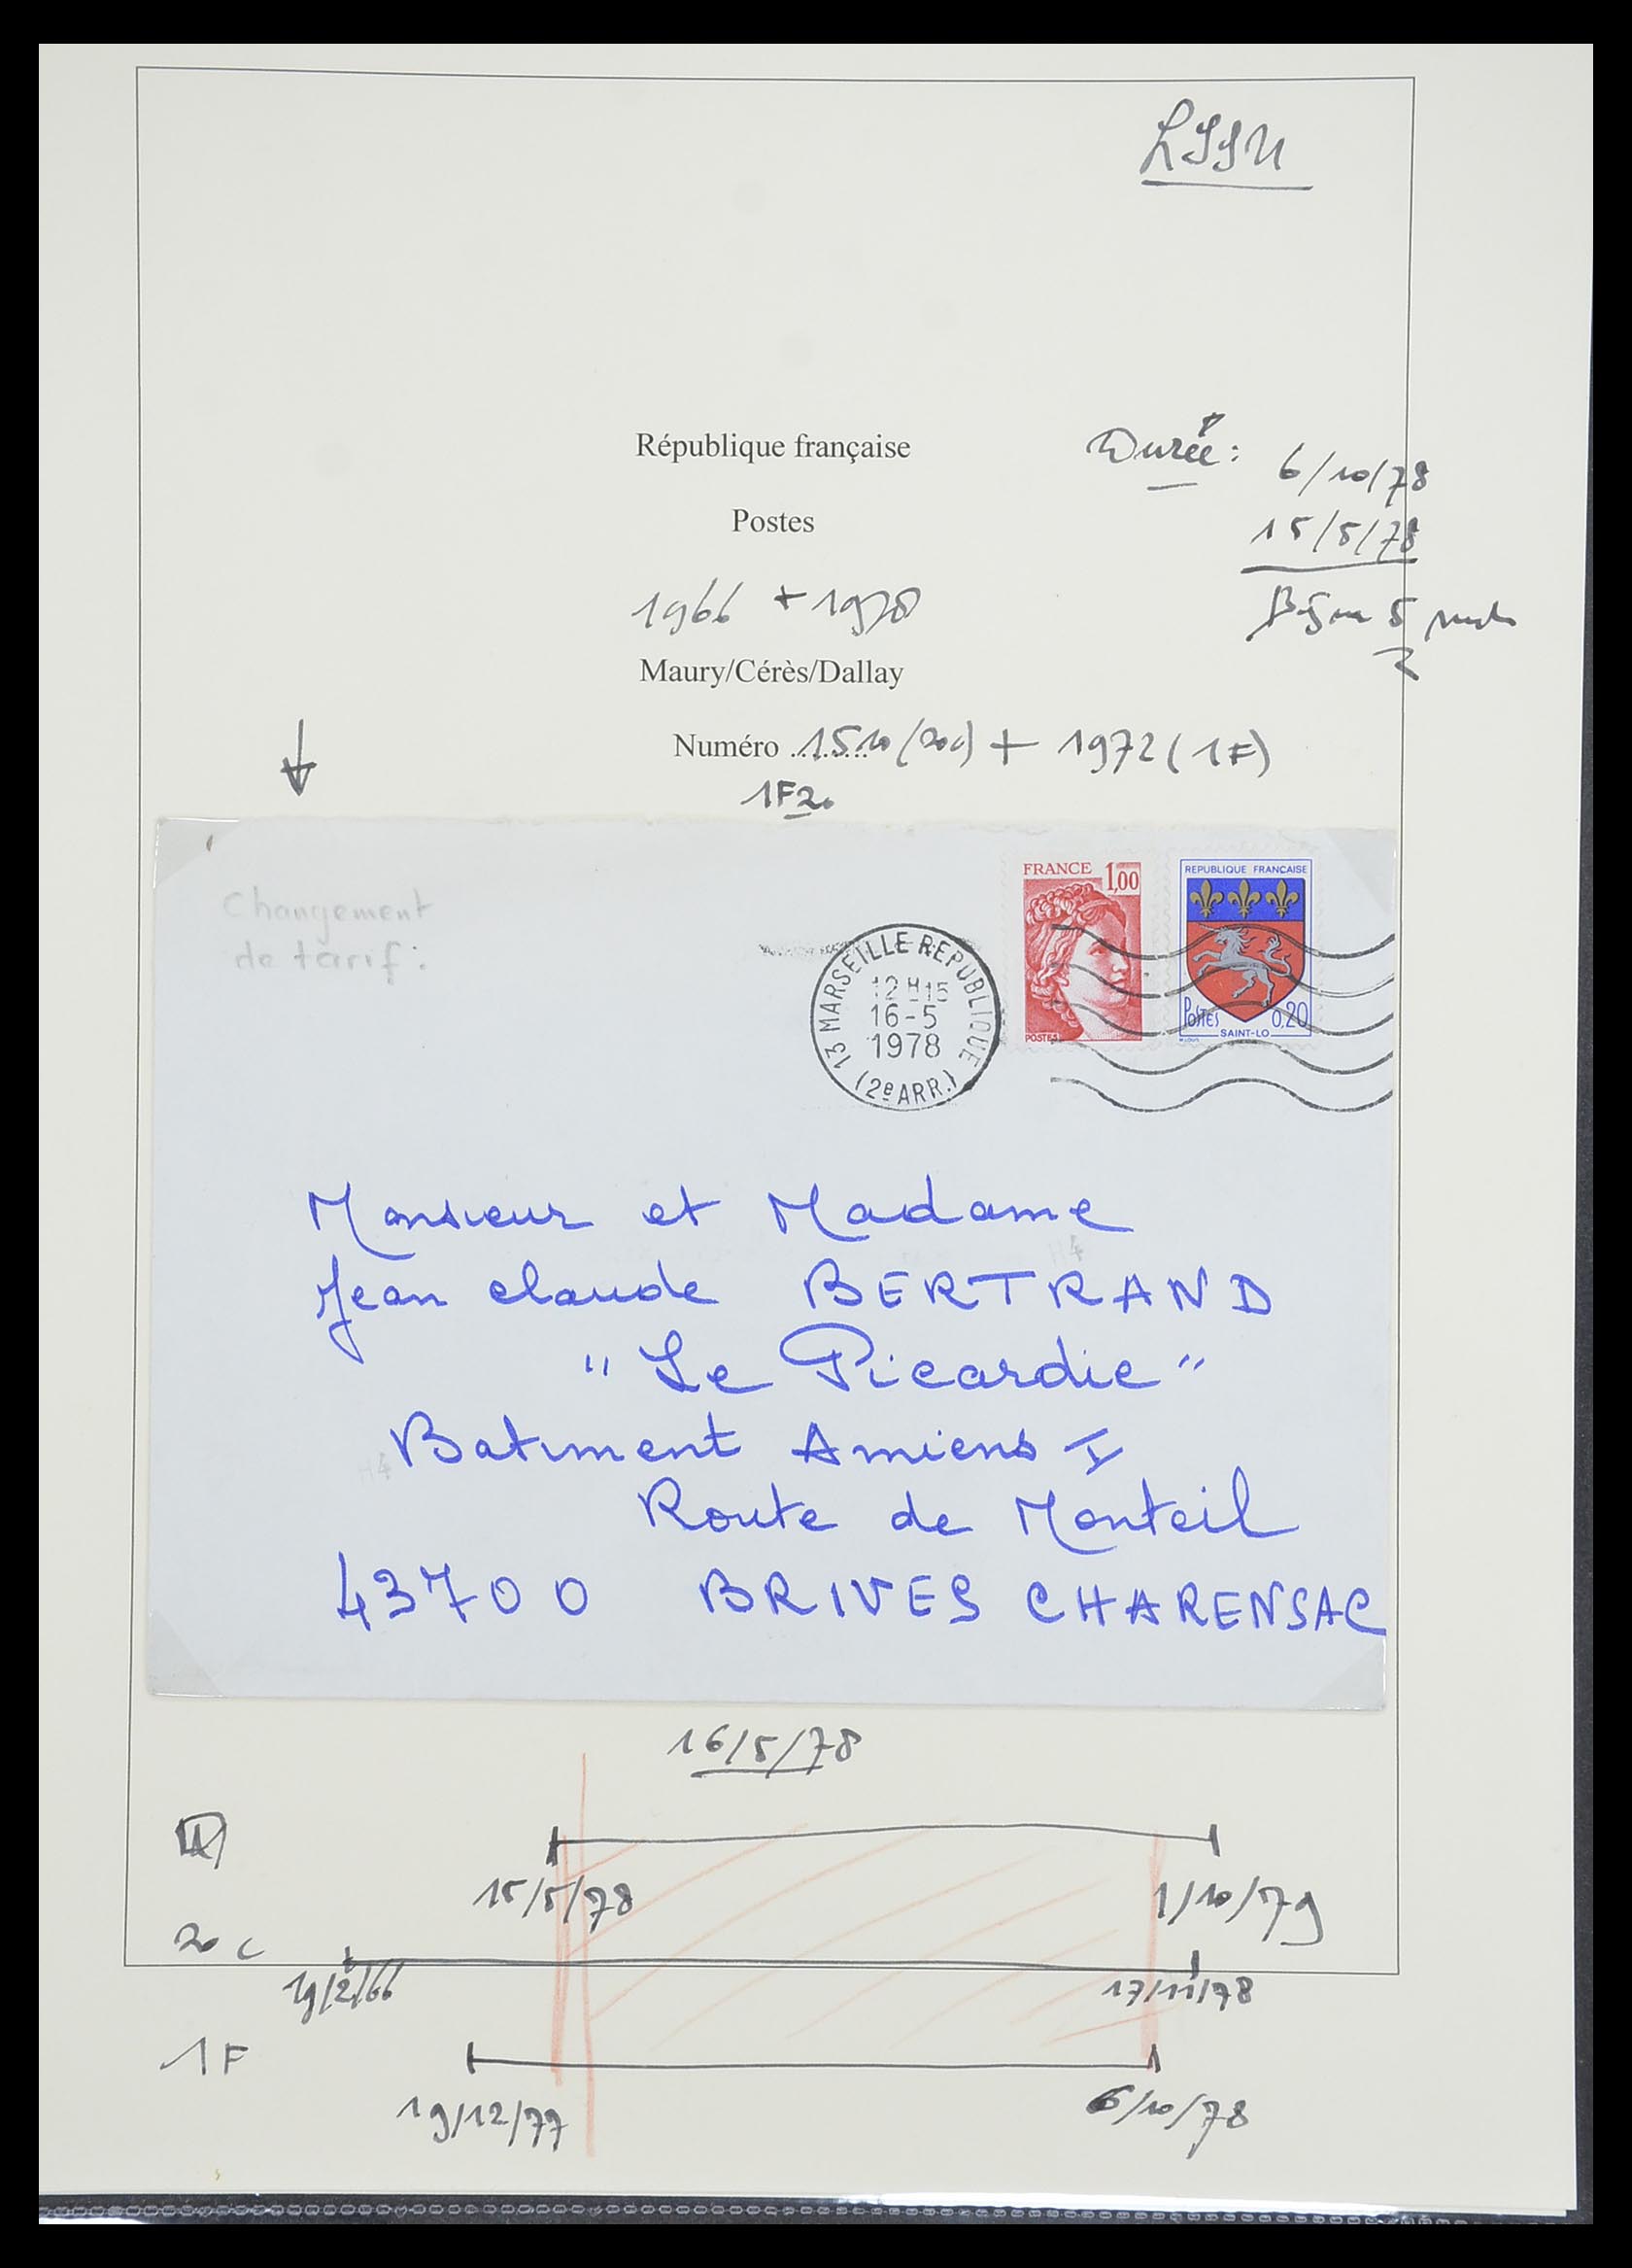 LSSU
République française
Durée: 6/10/78
Postes
15/5/78
1966 + 1978
5
Maury/Cérès/Dallay
Numéro ......... 1510 (20c) + 1972 (1F)
1F20
Changement
de tarif:
FRANCE 1,00
POSTES
REPUBLIQUE FRANÇAISE
POSTES 0,20
SAINT-LO
13 MARSEILLE REPUBLIQUE
12H15
16-5
1978
(2e ARR.)
Monsieur et Madame
Jean claude BERTRAND
"Le Picardie"
Batiment Amiens I
Route de Monteil
43700 BRIVES CHARENSAC
16/5/78
15/5/78 1/10/79
20 c
19/2/66 17/11/78
1F
19/12/77 6/10/78